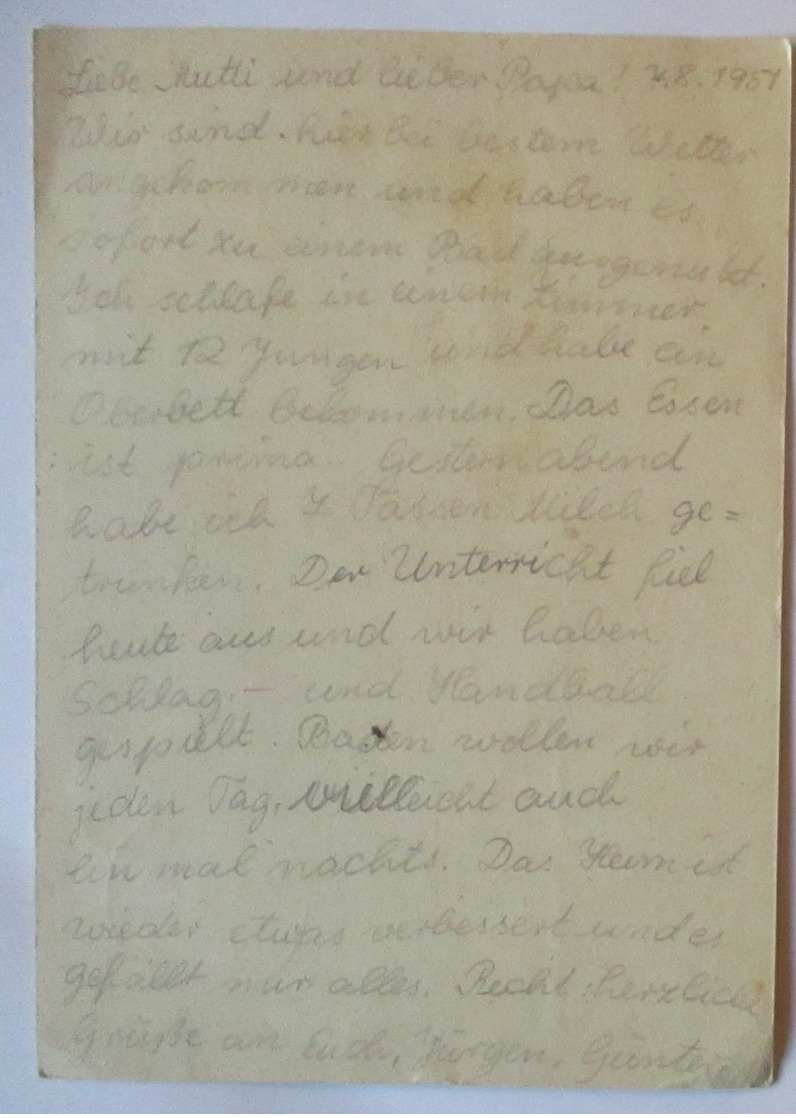 Liebe Mutti und lieber Papa! 7.8.1951
Wir sind hier bei bestem Wetter
angekommen und haben es
sofort zu einem Bad ausgenutzt.
Ich schlafe in einem Zimmer
mit 12 Jungen und habe ein
Oberbett bekommen. Das Essen
ist prima. Gestern abend
habe ich 7 Tassen Milch ge=
trunken. Der Unterricht fiel
heute aus und wir haben
Schlag- und Handball
gespielt. Baden wollen wir
jeden Tag, vielleicht auch
ein mal nachts. Das Heim ist
wieder etwas verbessert und es
gefällt mir alles. Recht herzliche
Grüße an Euch, Jürgen, Günter